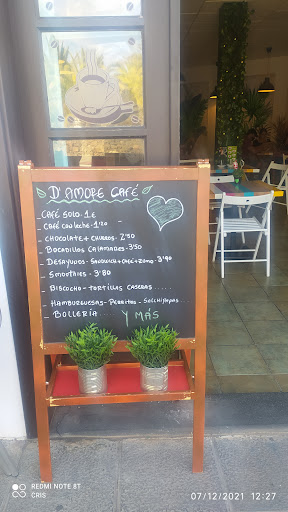 D'AMORE CAFÉ
- CAFÉ SOLO. 1.€
- CAFÉ con leche. 1'20
- CHOCOLATE + CHURROS. 2'50
- BOCADILLOS CALAMARES. 3.50
- DESAYUDOS - SANDWICH + CAFÉ + ZUMO. 3'90
- SMOOTHIES - 3'80
- BISCOCHO - TORTILLAS CASERAS....
- HAMBURGUESAS - PERRITOS -
- BOLLERÍA... Y MÁS
REDMI NOTE 8T
CRIS
07/12/2021 12:27